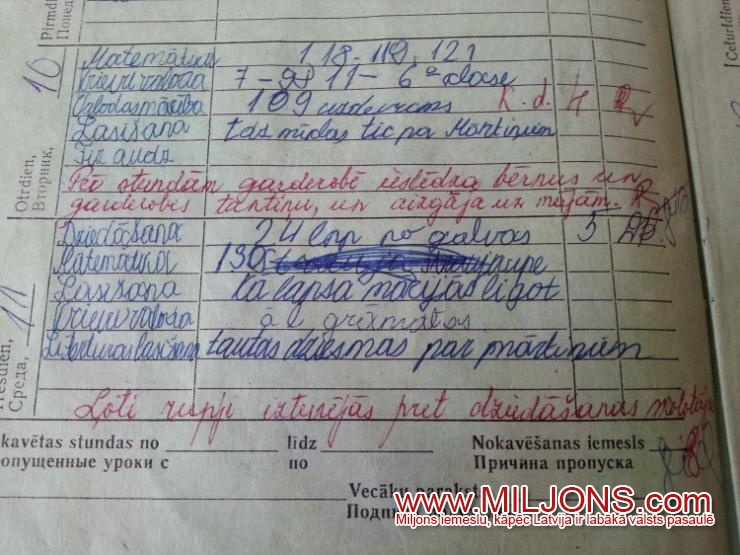 Pirmd
Понед
Otrdien, 10
Вторник,
Matemātika 118. 119. 121
Krievu valoda 7-98 11- 6ª klase
109 uzdevums K. d. 4
Lasīšana līdz mīklas ticpa Mārtiņiem
Fiz audz
Pēc stundām garderobē ieslēdza bērnus un
garderobes tantiņu, un aizgāja uz mājām.
Trešdien, 11
Среда,
Dziedāšana 24 lpp no galvas 5
Matemātika 130
Lasīšana Kā lapsa mācījās
Krievu valoda grāmatas
Literturas lasīšana tautas dziesmas par mārtiņiem
Ļoti rupji izturējās pret dziedāšanas skolotāju
kavētas stundas no līdz Nokavēšanas iemesls
опущенные уроки с по Причина пропуска
Vecāku parakst
Подпи
Ceturtdien
www.MILJONS.com
Miljons iemeslu, kāpēc Latvija ir labākā valsts pasaulē